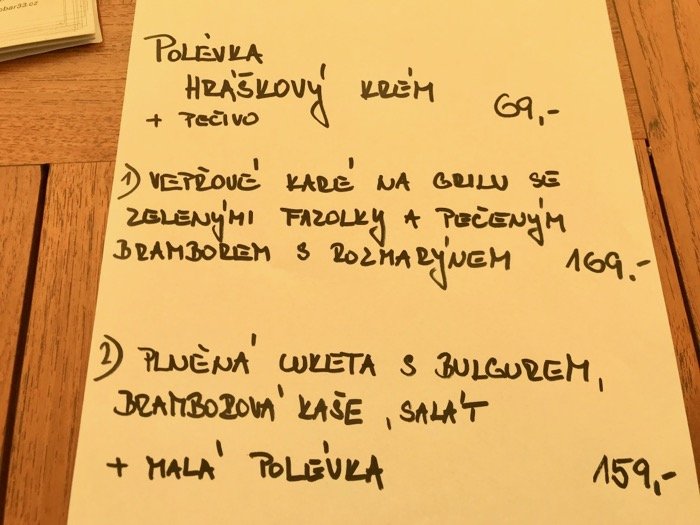 obar33.cz
POLÉVKA
HRÁŠKOVÝ KRÉM
+ PEČIVO 69,-
1) VEPŘOVÉ KARÉ NA GRILU SE
ZELENÝMI FAZOLKY A PEČENÝM
BRAMBOREM S ROZMARÝNEM 169.-
2) PLNĚNÁ CUKETA S BULGUREM,
BRAMBOROVÁ KAŠE, SALÁT
+ MALÁ POLÉVKA 159,-